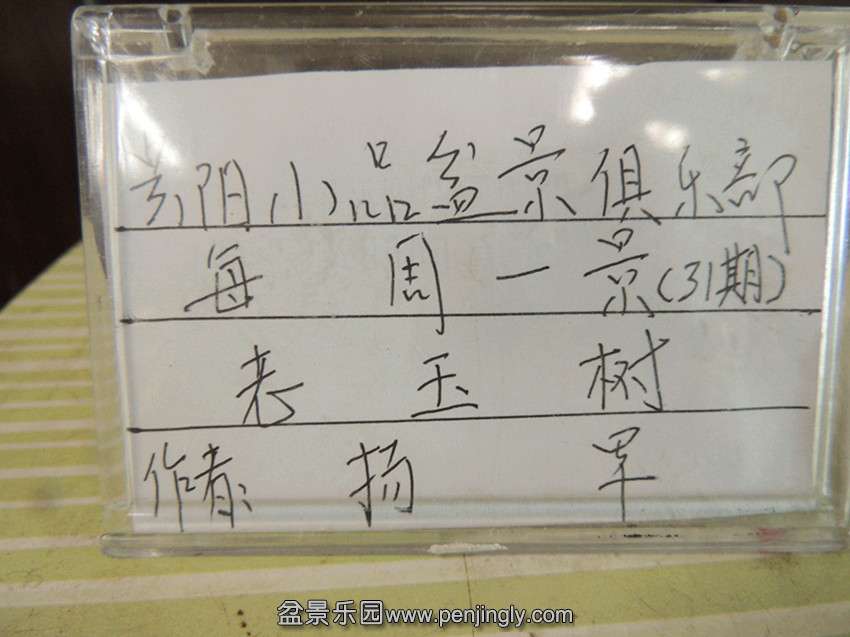 贵阳小品盆景俱乐部
每周一景(31期)
老玉树
作者:扬
盆景乐园www.penjingly.com